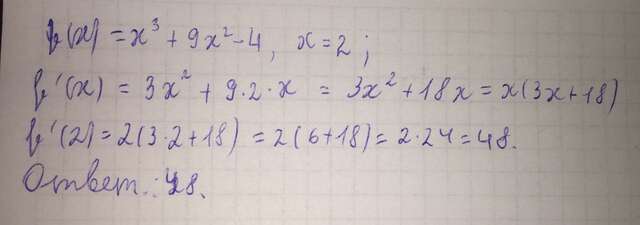 f(x) = x³ + 9x² - 4, x = 2 ;
f'(x) = 3x² + 9·2·x = 3x² + 18x = x(3x + 18)
f'(2) = 2(3·2 + 18) = 2(6 + 18) = 2·24 = 48.
Ответ: 48.